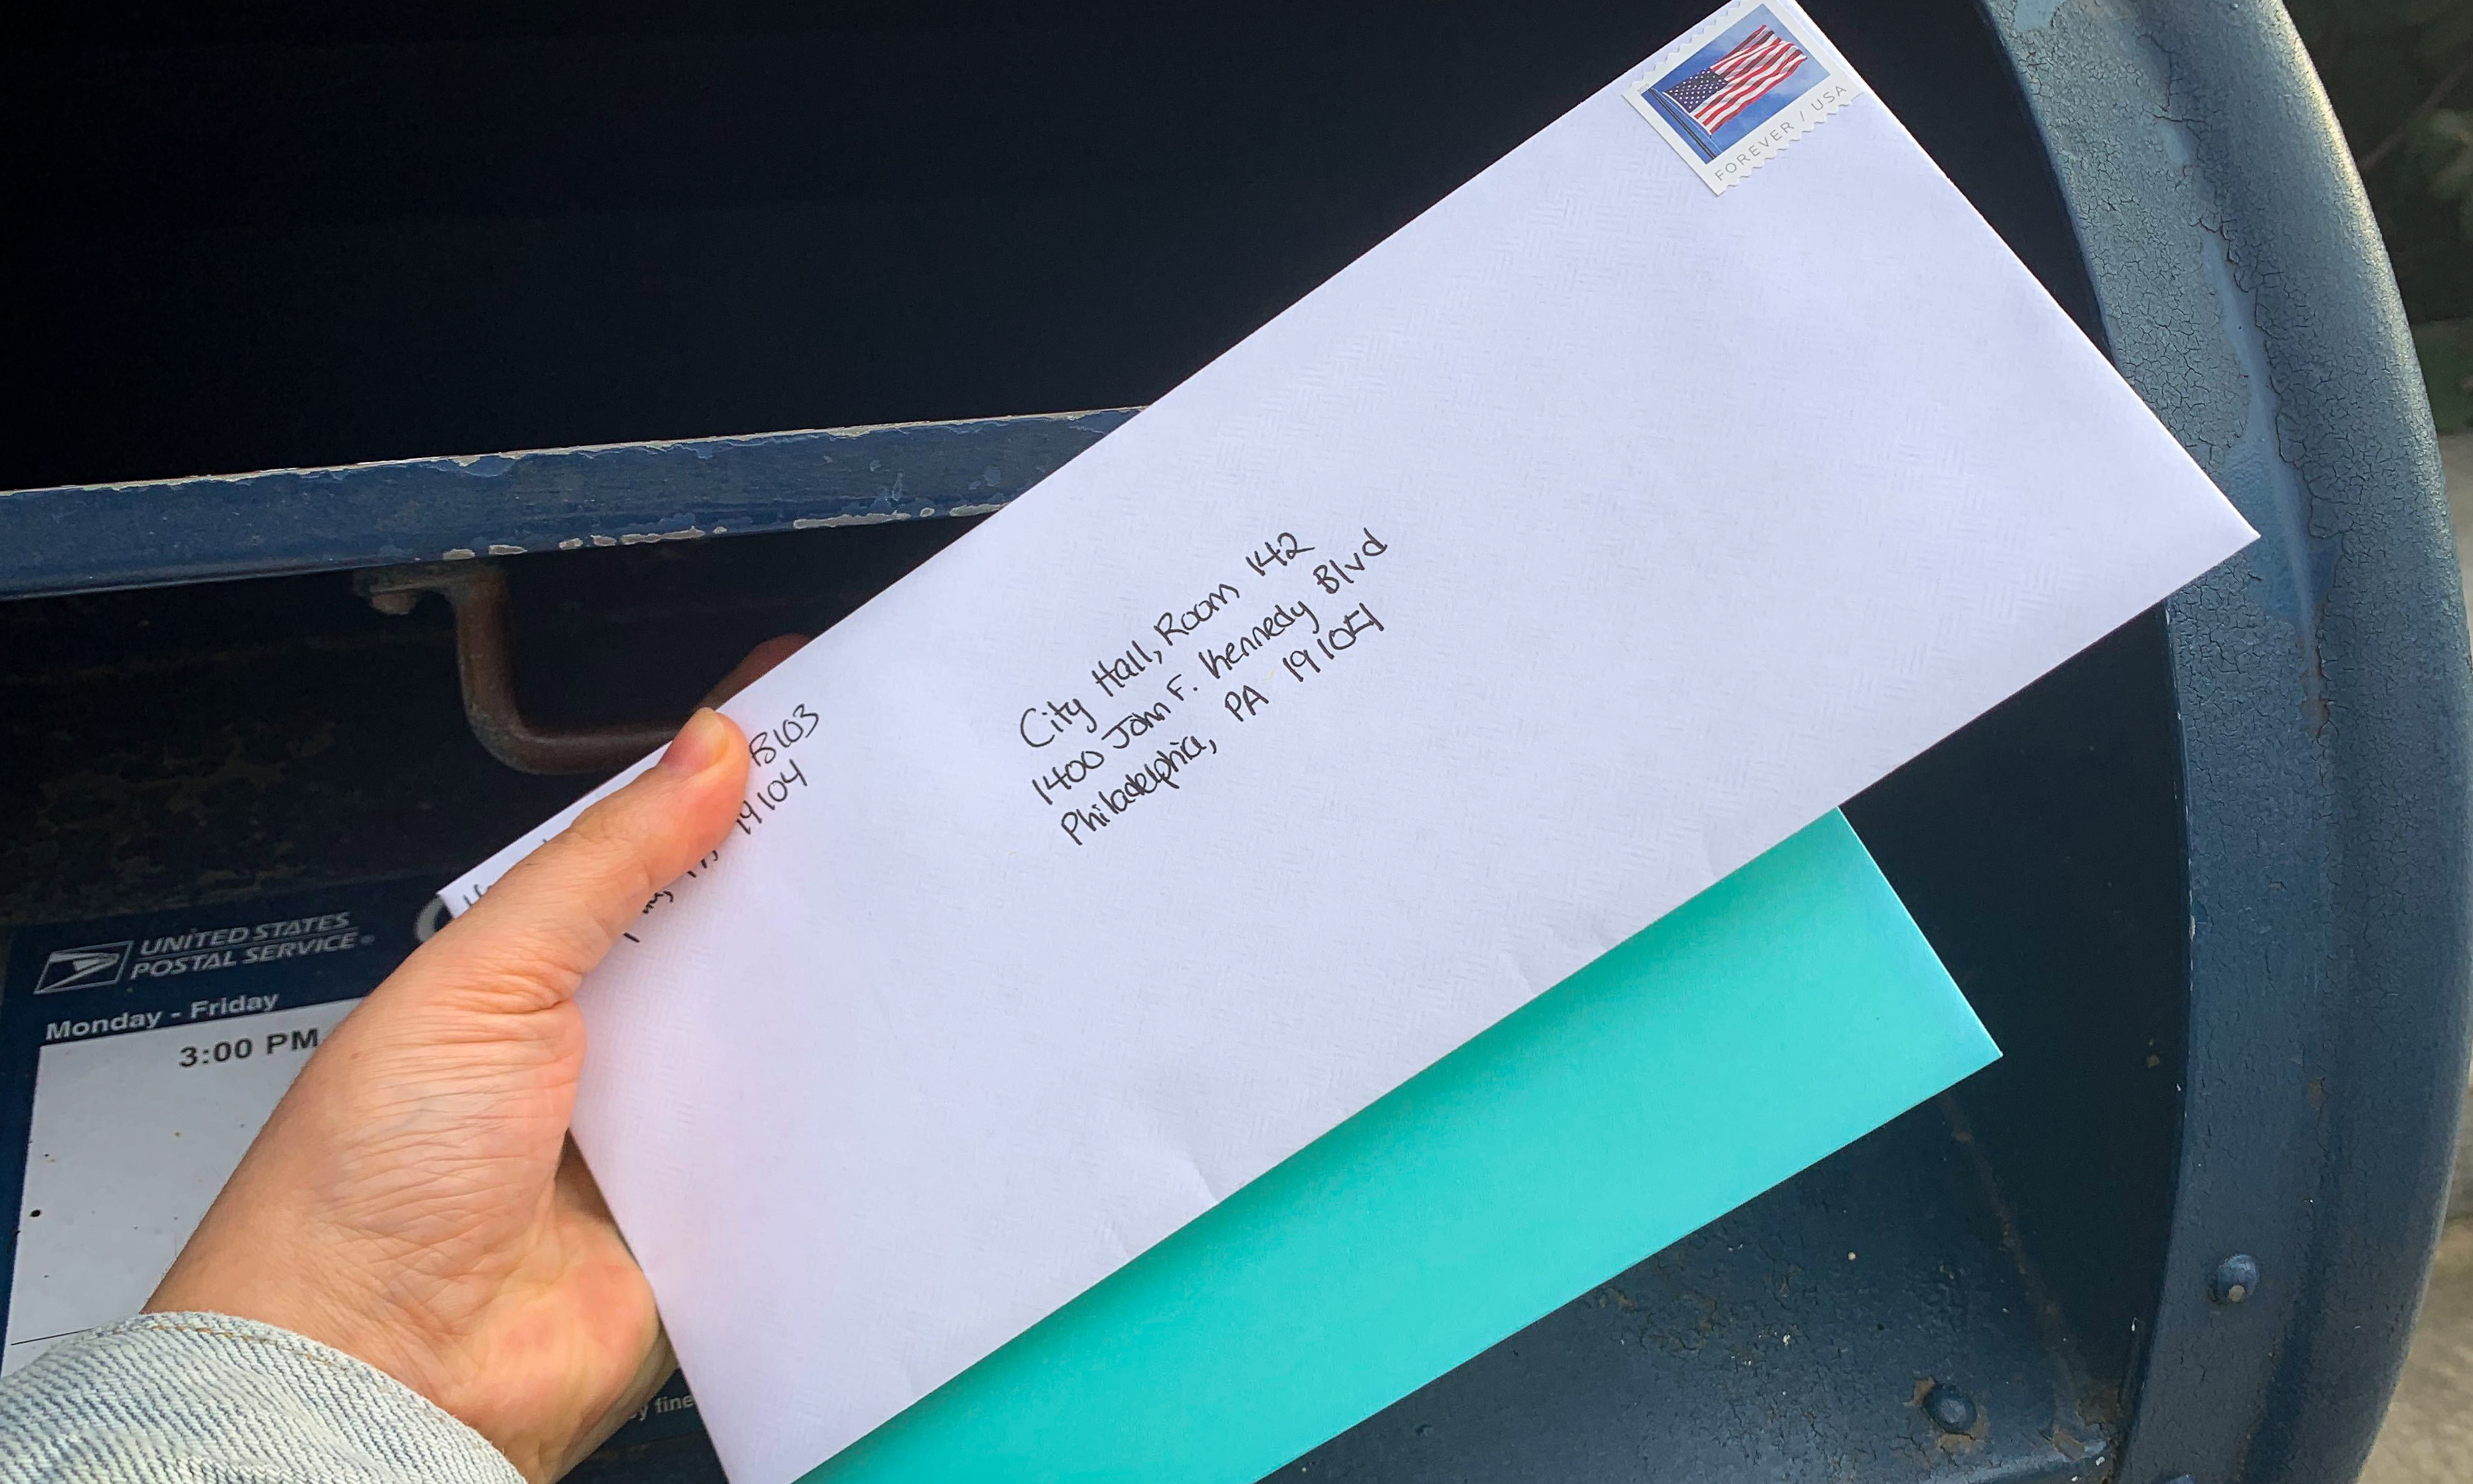 FOREVER / USA
City Hall, Room 142
1400 John F. Kennedy Blvd
Philadelphia, PA 19105
B103
19104
UNITED STATES
POSTAL SERVICE®
Monday - Friday
3:00 PM
fine